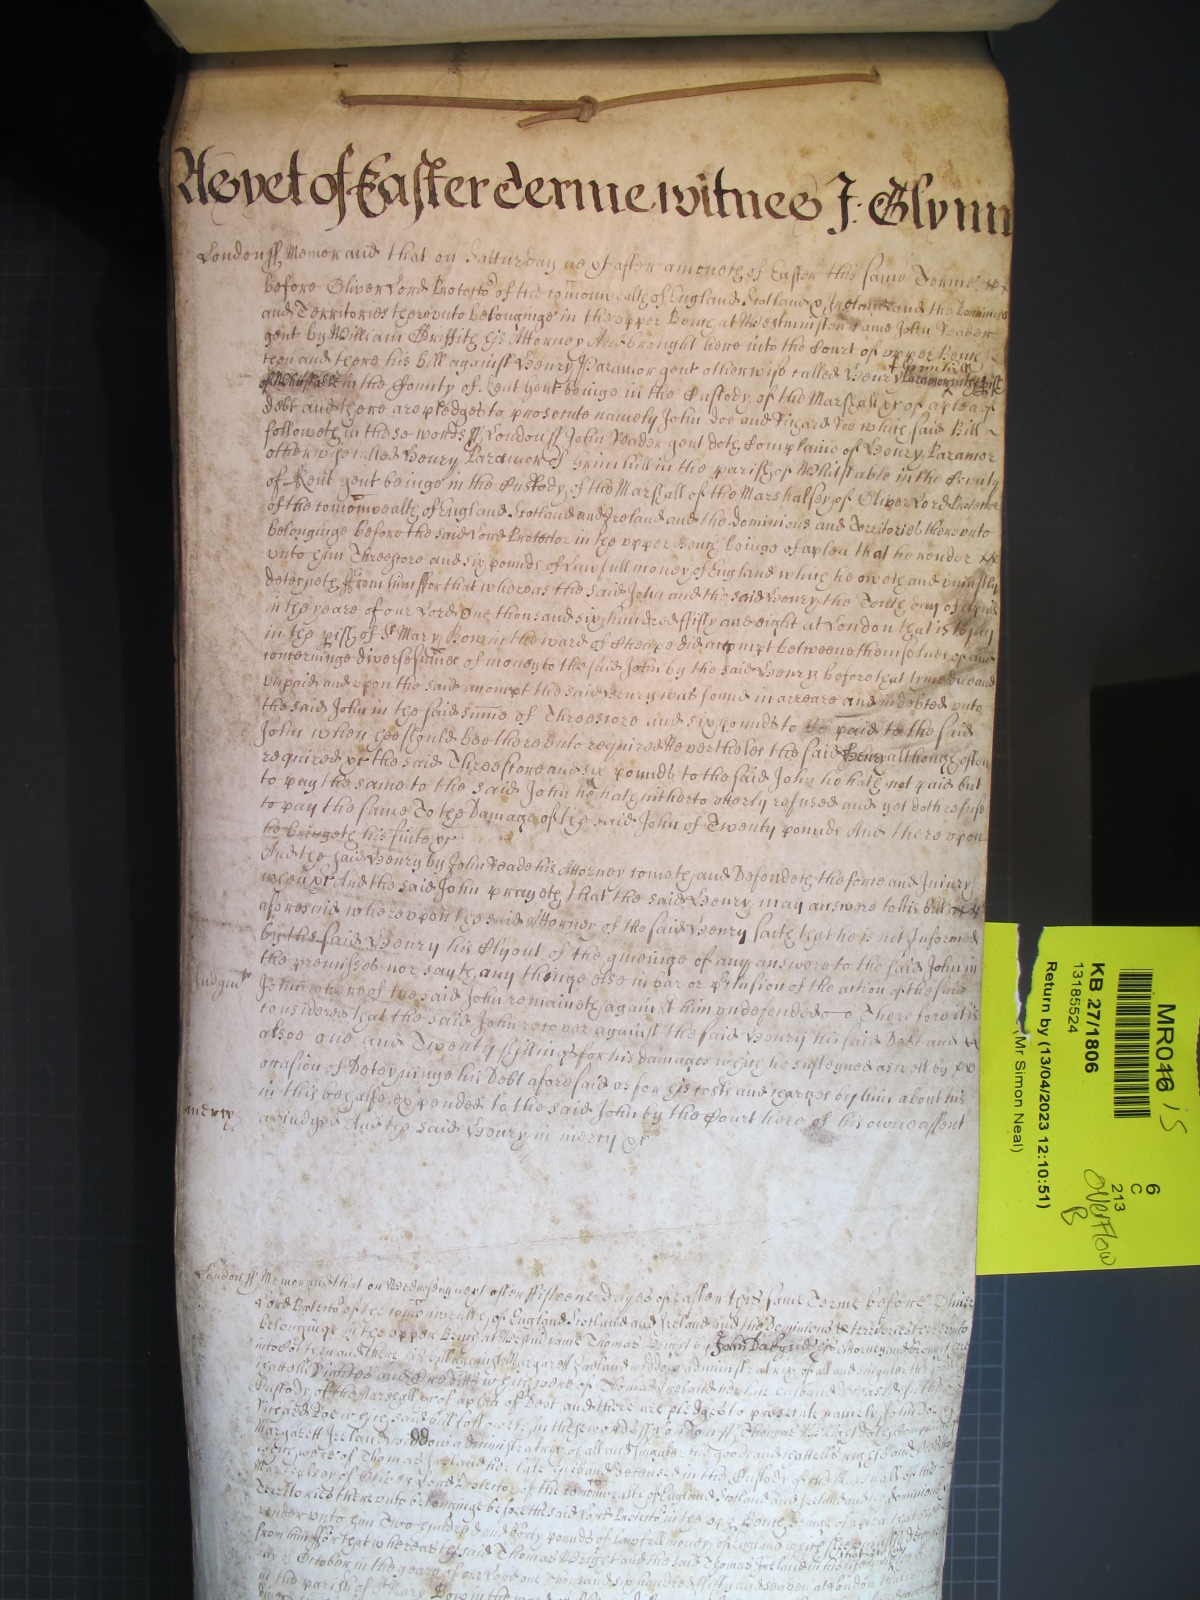 As yet of Easter Terme witnes J: Glynn
London ss Memorand that on Satturday next after a moneth of Easter this same Terme
before Oliver Lord Protector of the comonwealth of England Scotland & Ireland and the Dominions
and Territories thereunto belonginge in the upper Bench at Westminster came John Reader
gent by William Griffith his Attorney And brought here into the Court of upper Bench
then and there his bill against Henry Paramor gent otherwise called Henry Paramor
in the County of Kent gent beinge in the Custody of the Marshall &c of a plea of
debt and there are pledges to prosecute namely John Doe and Richard Roe which said Bill
followeth in these words ss London ss John Reader gent doth Complaine of Henry Paramor
otherwise called Henry Paramor of Grimhill in the parish of Whitstable in the County
of Kent gent beinge in the Custody of the Marshall of the Marshalsey of Oliver Lord Protector
of the comonwealth of England Scotland and Ireland and the dominions and Territories thereunto
belonginge before the said Lord Protector in the upper Bench beinge of a plea that he render
unto him Threescore and six pounds of Lawfull money of England which he oweth and uniustly
deteyneth from him ffor that whereas the said John and the said Henry the Tenth day of Aprill
in the yeare of our Lord One thousand six hundred ffifty and eight at London that is to say
in the pish of St Mary Bow in the ward of Cheape did accompt betweene themselves of and
concerninge diverse sumes of money to the said John by the said Henry before that time due and
unpaid and upon the said accompt the said Henry was found in arreare and indebted unto
the said John in the said sume of Threescore and six pounds to be paid to the said
John when hee should bee thereunto required Nevertheles the said Henry although often
required &c the said Threescore and six pounds to the said John he hath not paid but
to pay the same to the said John he hath hitherto utterly refused and yet doth refuse
to pay the same To the Damage of the said John of Twenty pounds And thereupon
he bringeth his suite &c
And the said Henry by John Reade his Attorney cometh and Defendeth the force and Iniury
when &c And the said John prayeth that the said Henry may answere to his bill
aforesaid whereupon the said Attorney of the said Henry saith that he is not Informed
by the said Henry his Clyent of the giveinge of any answere to the said John in
the premisses nor sayth any thinge else in bar or of the action of the said
Judgmt John whereof the said John remaineth against him undefended Therefore it is
considered that the said John recover against the said Henry his said Debt and
alsoe one and Twenty shillings for his damages which he susteyned aswell by
occasion of Deteyninge his Debt aforesaid as for his costs and charges by him about his
mercy in this behalfe expended to the said John by the Court here of his owne assent
adiudged And the said Henry in mercy &c
London ss Memorand that on Wednesday next after ffifteene dayes of Easter this same Terme before Oliver
Lord Protector of the comonwealth of England Scotland and Ireland and the Dominions & territories thereunto
belonginge in the upper Bench at Westm came Thomas Wright by John Dakyn his Attorney and brought here
into Court then and there his bill against Margarett Ireland widdow administratrix of all and singuler the
Cattells Rights and Creditts which were of Thomas Ireland her late husband deceased in the
Custody of the Marshall &c of a plea of Debt and there are pledges to prosecute namely John Doe &
Richard Roe which said bill followeth in these words ss London ss Thomas Wright doth complaine of
Margarett Ireland widdow administratrix of all and singuler the goods and cattells rights and creditts
which were of Thomas Ireland her late husband deceased in the Custody of the Marshall of the
Marshalsey of Oliver Lord Protector of the comonwealth of England Scotland and Ireland and the dominions
Territories thereunto belonginge before the said Lord Protector in the upper Bench beinge of a plea that
render unto him Two hundred and forty pounds of lawfull money of England which
from him ffor that whereas the said Thomas Wright and the said Thomas Ireland in his life
day of October in the yeare of our Lord one Thousand six hundred ffifty and seaven at London
in the parish of St Mary Bow in the ward
MR046 15
13185524
KB 27/1806
Return by (13/04/2023 12:10:51)
(Mr Simon Neal)
6
C
213
Overflow
B